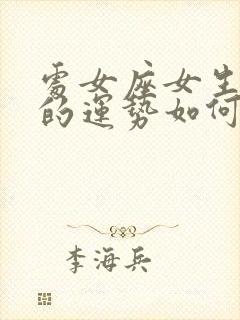 處女座女生
的運勢如何
李海兵